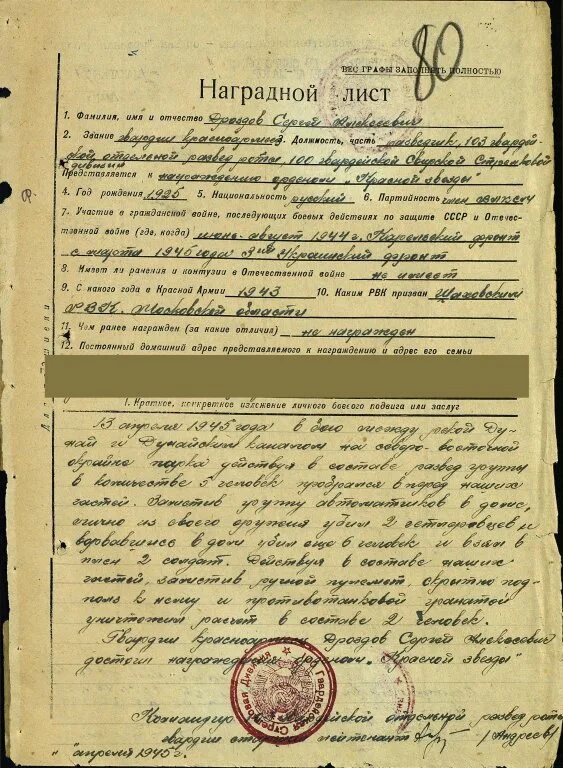 80
ВСЕ ГРАФЫ ЗАПОЛНЯТЬ ПОЛНОСТЬЮ
Наградной лист
1. Фамилия, имя и отчество Дроздов Сергей Алексеевич
2. Звание гвардии красноармеец 3. Должность, часть разведчик, 103 гвардей-
ской отдельной развед роты, 100 гвардейской Свирской Стрелковой
дивизии
Представляется к награждению орденом „Красной звезды"
4. Год рождения 1925 5. Национальность русский 6. Партийность член ВЛКСМ
7. Участие в гражданской войне, последующих боевых действиях по защите СССР и Отечест-
венной войне (где, когда) июнь-август 1944 г. Карельский фронт
с марта 1945 года 3ий Украинский фронт
8. Имеет ли ранения и контузии в Отечественной войне не имеет
9. С какого года в Красной Армии 1943 10. Каким РВК призван Шаховским
РВК, Московской области
11. Чем ранее награжден (за какие отличия) не награжден
12. Постоянный домашний адрес представляемого к награждению и адрес его семьи
1. Краткое, конкретное изложение личного боевого подвига или заслуг
13 апреля 1945 года в бою между рекой Ду-
най и Дунайским каналом на северо-восточной
окраине парка действуя в составе развед группы
в количестве 5 человек пробрался вперед наших
частей. Заметив группу автоматчиков в доме,
лично из своего оружия убил 2 и
ворвавшись в дом убил еще 6 человек и взял в
плен 2 солдат. Действуя в составе наших
частей, заметив ручной пулемет, скрытно под-
полз к нему и противотанковой гранатой
уничтожил расчет в составе 2 человек.
Гвардии красноармеец Дроздов Сергей Алексеевич
достоин награждения орденом „Красной звезды"
Командир гвардейской отдельной развед роты
гвардии старший лейтенант /Андреев/
" " апреля 1945 г.
Стрелковая Дивизия Гвардейская